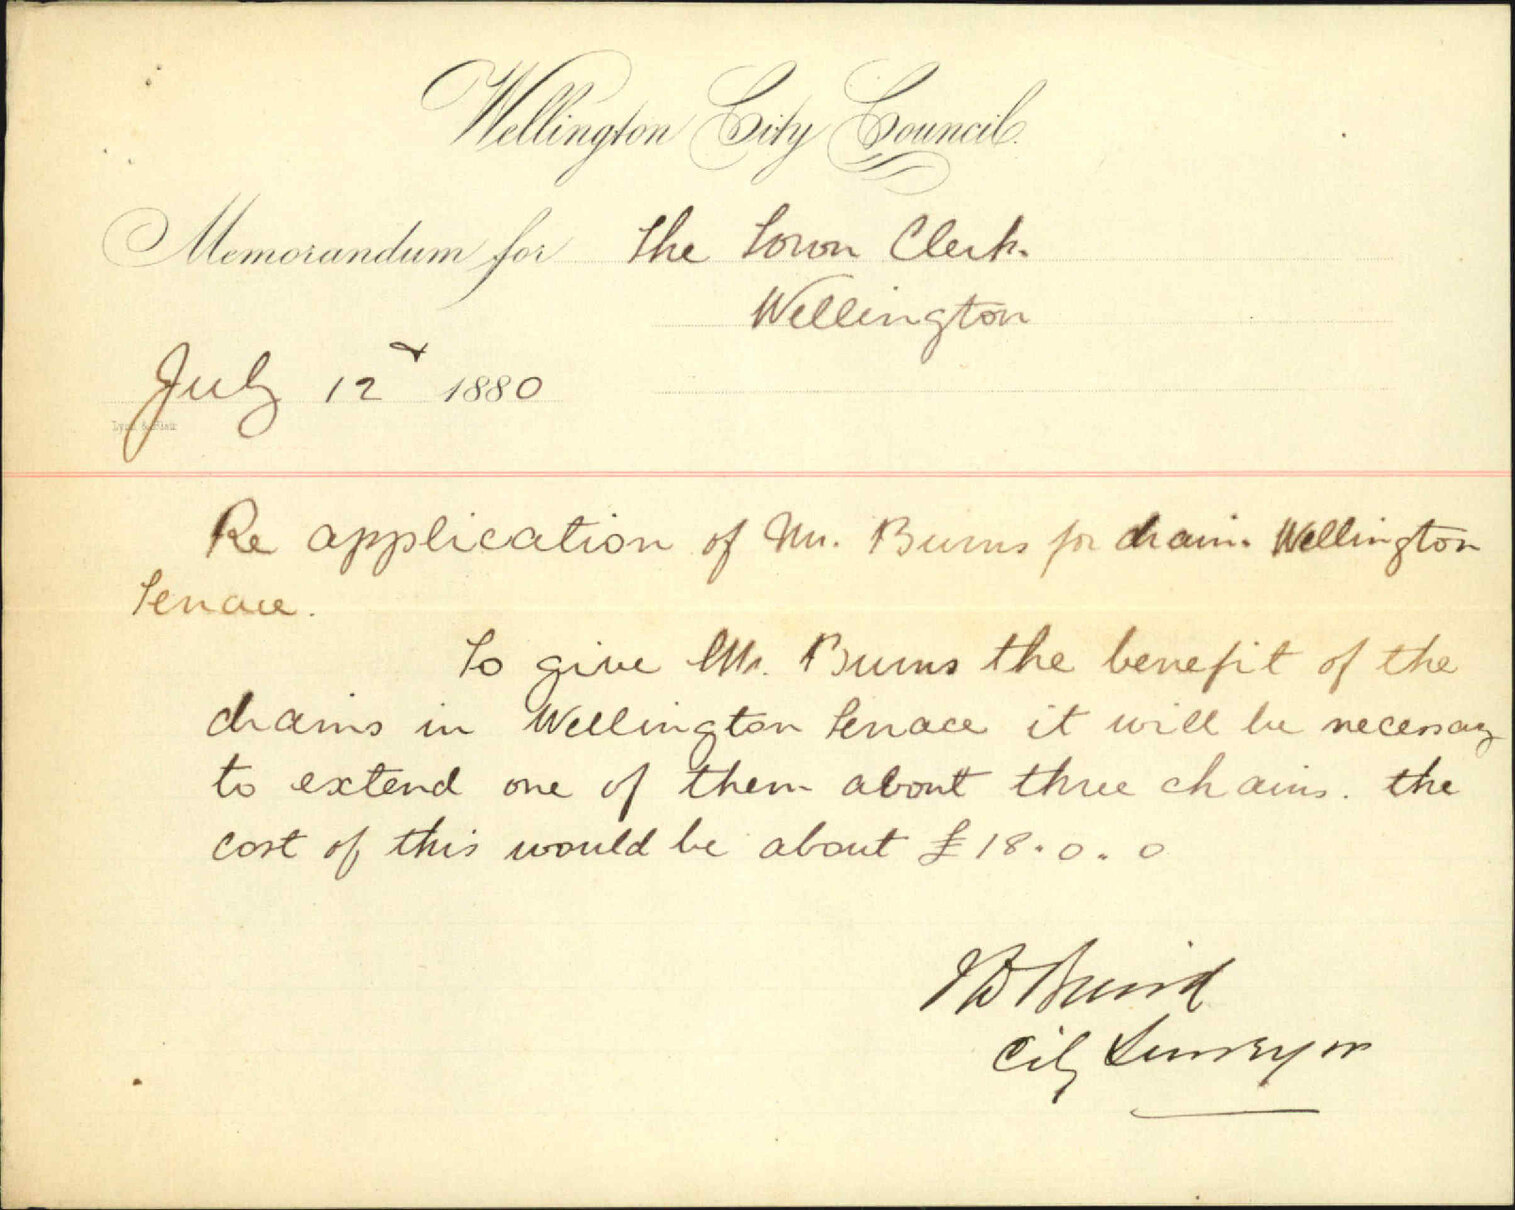 Wellington City Council.
Memorandum for The Town Clerk.
Wellington
July 12 1880
Lyon & Blair
Re application of Mr. Burns for drain. Wellington
Terrace.
To give Mr. Burns the benefit of the
drains in Wellington Terrace it will be necessary
to extend one of them about three chains. the
cost of this would be about £18.0.0
Baird
City Surveyor